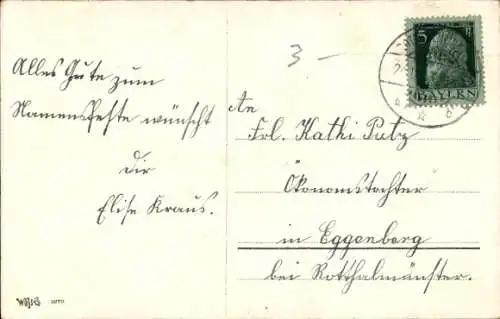 Alles Gute zum
Namensfeste wünscht
dir
Elise Kraus.
3 —
An
Frl. Kathi Putz
Ökonomstochter
in Eggenberg
bei Rotthalmünster.
5
BAYERN